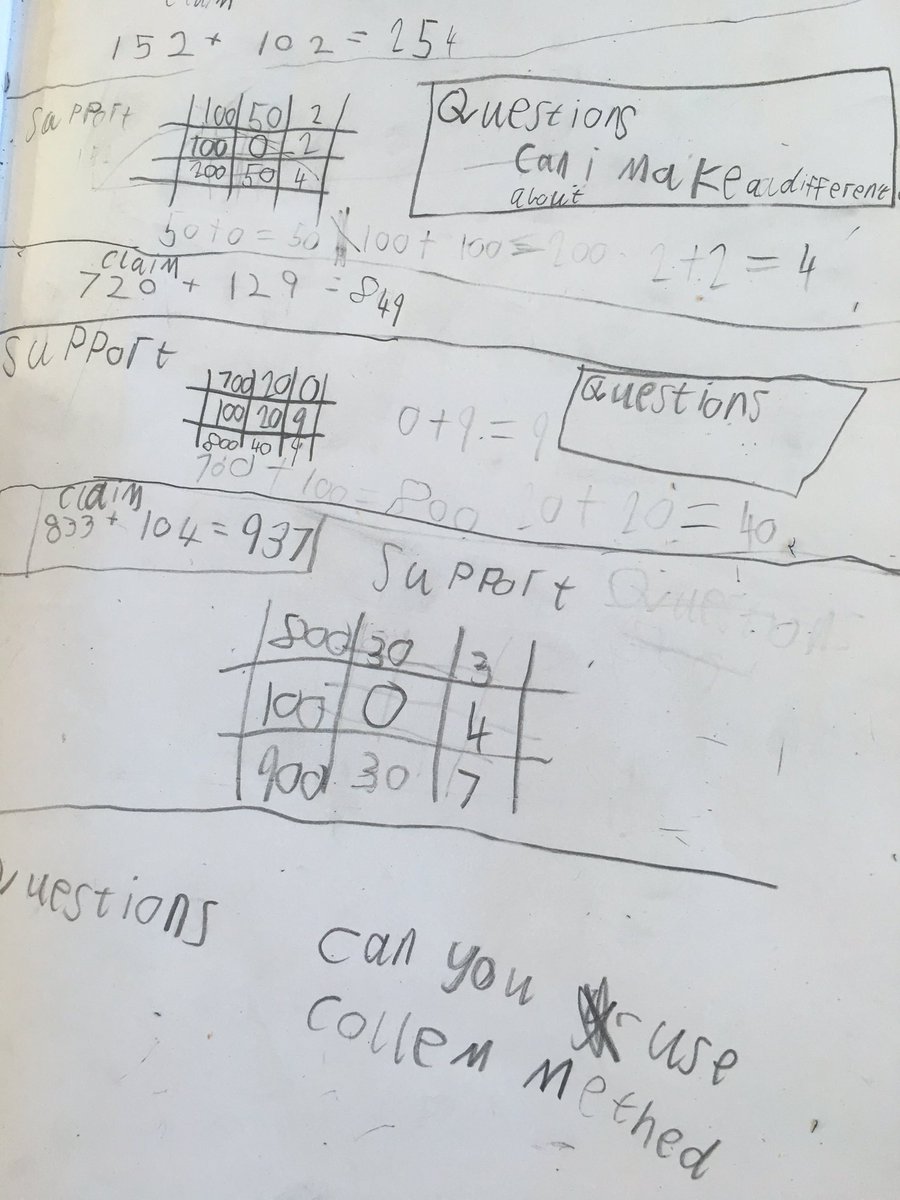 claim
152 + 102 = 254
Support
100 50 2
100 0 2
200 50 4
Questions
can i make a different
about
50+0=50 100+100=200 2+2=4
claim
720 + 129 = 849
Support
700 20 0
100 20 9
800 40 9
Questions
0+9=9
700 + 100 = 800 20 + 20 = 40
claim
833 + 104 = 937
Support
Questions
800 30 3
100 0 4
900 30 7
Questions
can you use
collem methed